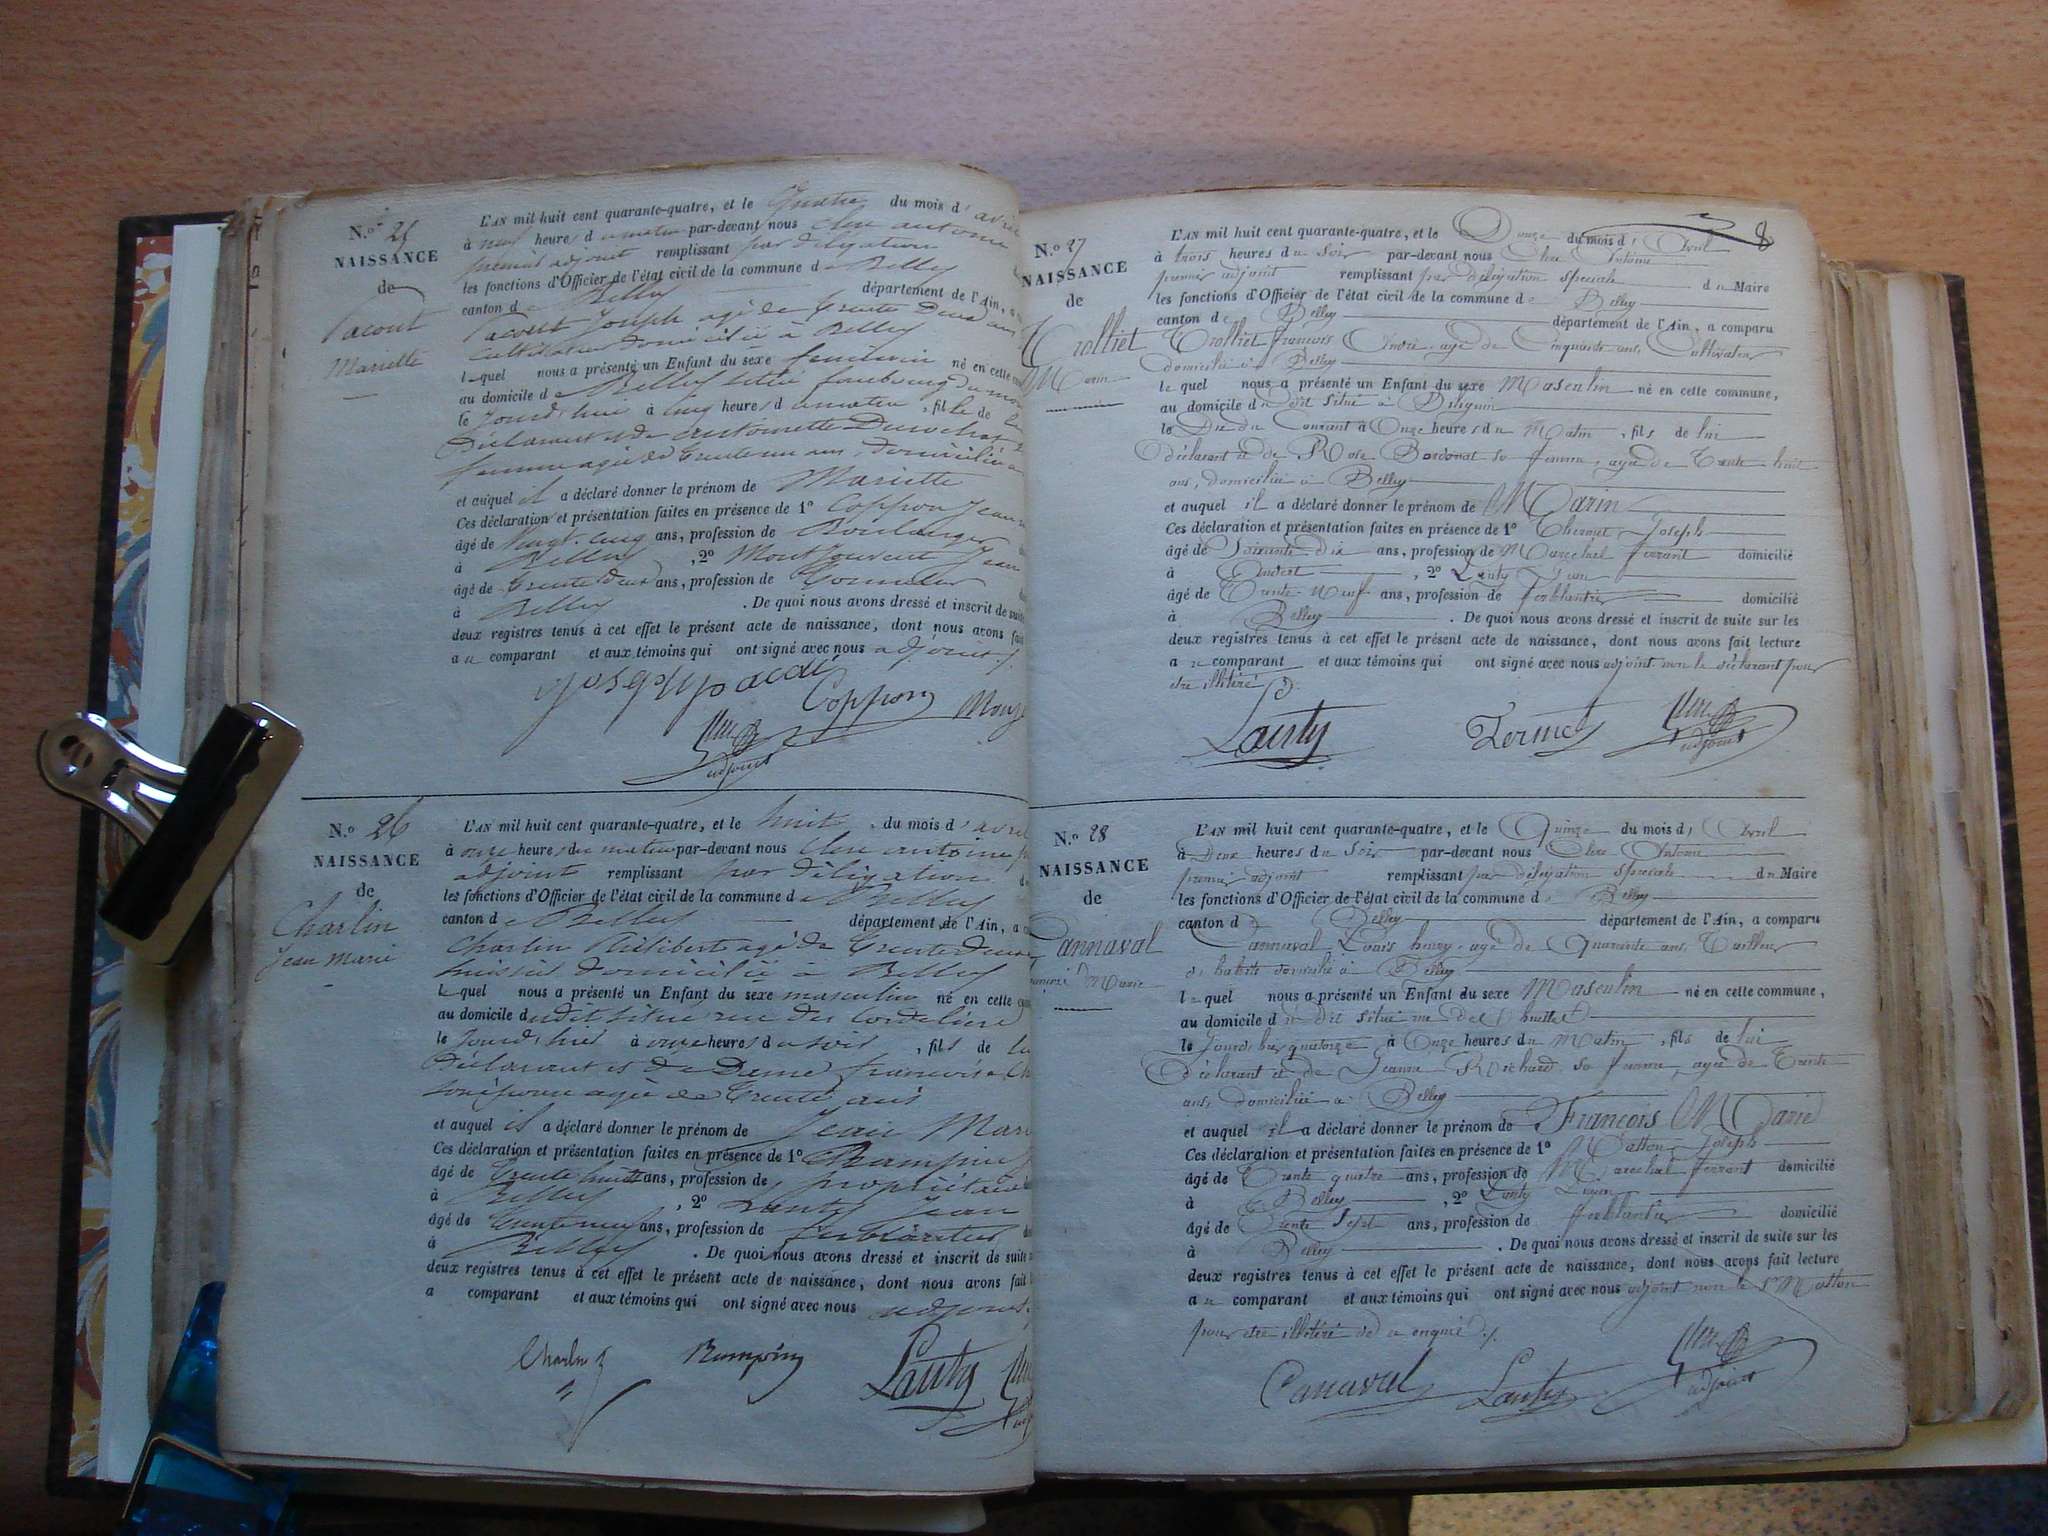 N.º 25
NAISSANCE
de
Pacout
Mariette
L'AN mil huit cent quarante-quatre, et le Quatre du mois d'avril
à neuf heures du matin par-devant nous Clerc antoine
premier adjoint remplissant par délégation
les fonctions d'Officier de l'état civil de la commune de Belley
canton de Belley département de l'Ain, a
Pacout Joseph agé de trente Deux ans
cultivateur domicilié à Belley
lequel nous a présenté un Enfant du sexe feminin né en cette
au domicile de Belley situé faubourg du
le Jourd'hui à cinq heures du matin, fille de
Déclarant et de antoinette
femme agée de trente un ans, domiciliée
et auquel il a déclaré donner le prénom de Mariette
Ces déclaration et présentation faites en présence de 1º Coppon Jean
âgé de Vingt cinq ans, profession de Boulanger
à Belley, 2º Montjouvent Jean
âgé de trente deux ans, profession de
à Belley. De quoi nous avons dressé et inscrit de suite
deux registres tenus à cet effet le présent acte de naissance, dont nous avons fait
au comparant et aux témoins qui ont signé avec nous adjoint
Joseph pacout
Coppon
Clerc
adjoint
N.º 26
NAISSANCE
de
Charlin
Jean Marie
L'AN mil huit cent quarante-quatre, et le huit du mois d'avril
à onze heures du matin par-devant nous Clerc antoine
adjoint remplissant par délégation
les fonctions d'Officier de l'état civil de la commune de Belley
canton de Belley département de l'Ain, a
Charlin Philibert agé de trente deux
huissier domicilié à Belley
lequel nous a présenté un Enfant du sexe masculin né en cette
au domicile dudit situé rue des Cordeliers
le Jourd'hier à onze heures du soir, fils de lui
Déclarant et de Dame françoise
son épouse agée de trente ans
et auquel il a déclaré donner le prénom de Jean Marie
Ces déclaration et présentation faites en présence de 1º Rampin
âgé de trente huit ans, profession de propriétaire
à Belley, 2º Lanty Jean
âgé de trente neuf ans, profession de ferblantier
à Belley. De quoi nous avons dressé et inscrit de suite
deux registres tenus à cet effet le présent acte de naissance, dont nous avons fait
a comparant et aux témoins qui ont signé avec nous adjoint
Charlin
Rampin
Lanty
8
N.º 27
NAISSANCE
de
Trolliet
Marin
L'AN mil huit cent quarante-quatre, et le Douze du mois d'Avril
à trois heures du soir par-devant nous Clerc Antoine
premier adjoint remplissant par délégation speciale du Maire
les fonctions d'Officier de l'état civil de la commune de Belley
canton de Belley département de l'Ain, a comparu
Trolliet françois André agé de Cinquante ans, Cultivateur
domicilié à Belley
lequel nous a présenté un Enfant du sexe Masculin né en cette commune,
au domicile du dit situé à
le Dix du Courant à Onze heures du Matin, fils de lui
déclarant et de Rose Bordonat sa femme, agée de Trente huit
ans, domiciliée à Belley
et auquel il a déclaré donner le prénom de Marin
Ces déclaration et présentation faites en présence de 1º Thermet Joseph
âgé de Soixante Dix ans, profession de Marechal ferrant domicilié
à Andert, 2º Lanty Jean
âgé de Trente Neuf ans, profession de ferblantier domicilié
à Belley. De quoi nous avons dressé et inscrit de suite sur les
deux registres tenus à cet effet le présent acte de naissance, dont nous avons fait lecture
au comparant et aux témoins qui ont signé avec nous adjoint non le déclarant pour
etre illitéré
Lanty
Termet
Clerc
adjoint
N.º 28
NAISSANCE
de
Cannaval
François Marie
L'AN mil huit cent quarante-quatre, et le Quinze du mois d'Avril
à Deux heures du soir par-devant nous Clerc Antoine
premier adjoint remplissant par délégation speciale du Maire
les fonctions d'Officier de l'état civil de la commune de Belley
canton de Belley département de l'Ain, a comparu
Cannaval Louis henry agé de Quarante ans, Tailleur
d'habits domicilié à Belley
lequel nous a présenté un Enfant du sexe Masculin né en cette commune,
au domicile du dit situé rue
le Jourd'hier quatorze à Onze heures du Matin, fils de lui
déclarant et de Jeanne Richard sa femme, agée de Trente
ans, domiciliée à Belley
et auquel il a déclaré donner le prénom de François Marie
Ces déclaration et présentation faites en présence de 1º Matton Joseph
âgé de Trente quatre ans, profession de Marechal ferrant domicilié
à Belley, 2º Lanty
âgé de Trente Sept ans, profession de ferblantier domicilié
à Belley. De quoi nous avons dressé et inscrit de suite sur les
deux registres tenus à cet effet le présent acte de naissance, dont nous avons fait lecture
au comparant et aux témoins qui ont signé avec nous adjoint non le Sr Matton
pour etre illitéré de ce enquis
Canaval
Lanty
Clerc
adjoint